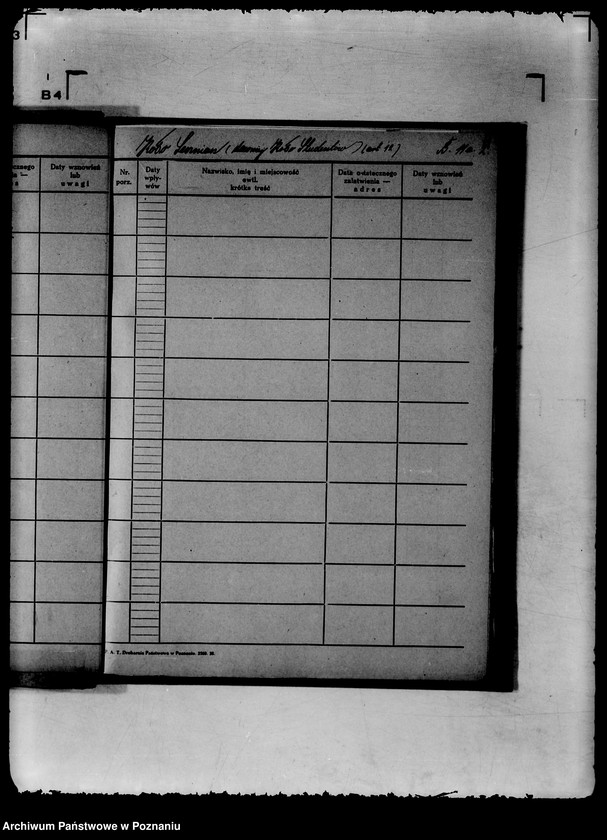 3
B4
Koło
Koło Studentów) (art 12)
cznego
Daty wznowień
lub
uwagi
Nr.
porz.
Daty
wpły-
wów
Nazwisko, imię i miejscowość
ewtl.
krótka treść
Data ostatecznego
załatwienia —
adres
Daty wznowień
lub
uwagi
A. T. Drukarnia Państwowa w Poznaniu.
Archiwum Państwowe w Poznaniu